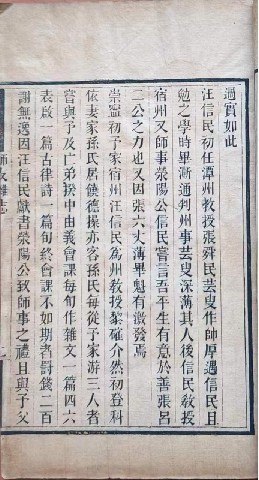 過實如此
汪信民初任潭州教授張舜民芸叟作帥厚遇信民且
勉之學時畢漸通判州事芸叟深薄其人後信民教授
宿州又師事滎陽公信民嘗言吾平生有意於善張呂
二公之力也又因張六丈薄畢魁有激發焉
崇寧初予家宿州汪信民為州教授黎確介然初登科
依妻家孫氏居饒德操亦客孫氏每從予家游三人者
嘗與予及亡弟揆中由義會課每旬作雜文一篇四六
表啟一篇古律詩一篇旬終會課不如期者罰錢二百
謝無逸因汪信民獻書滎陽公致師事之禮且與予父
師友雜志